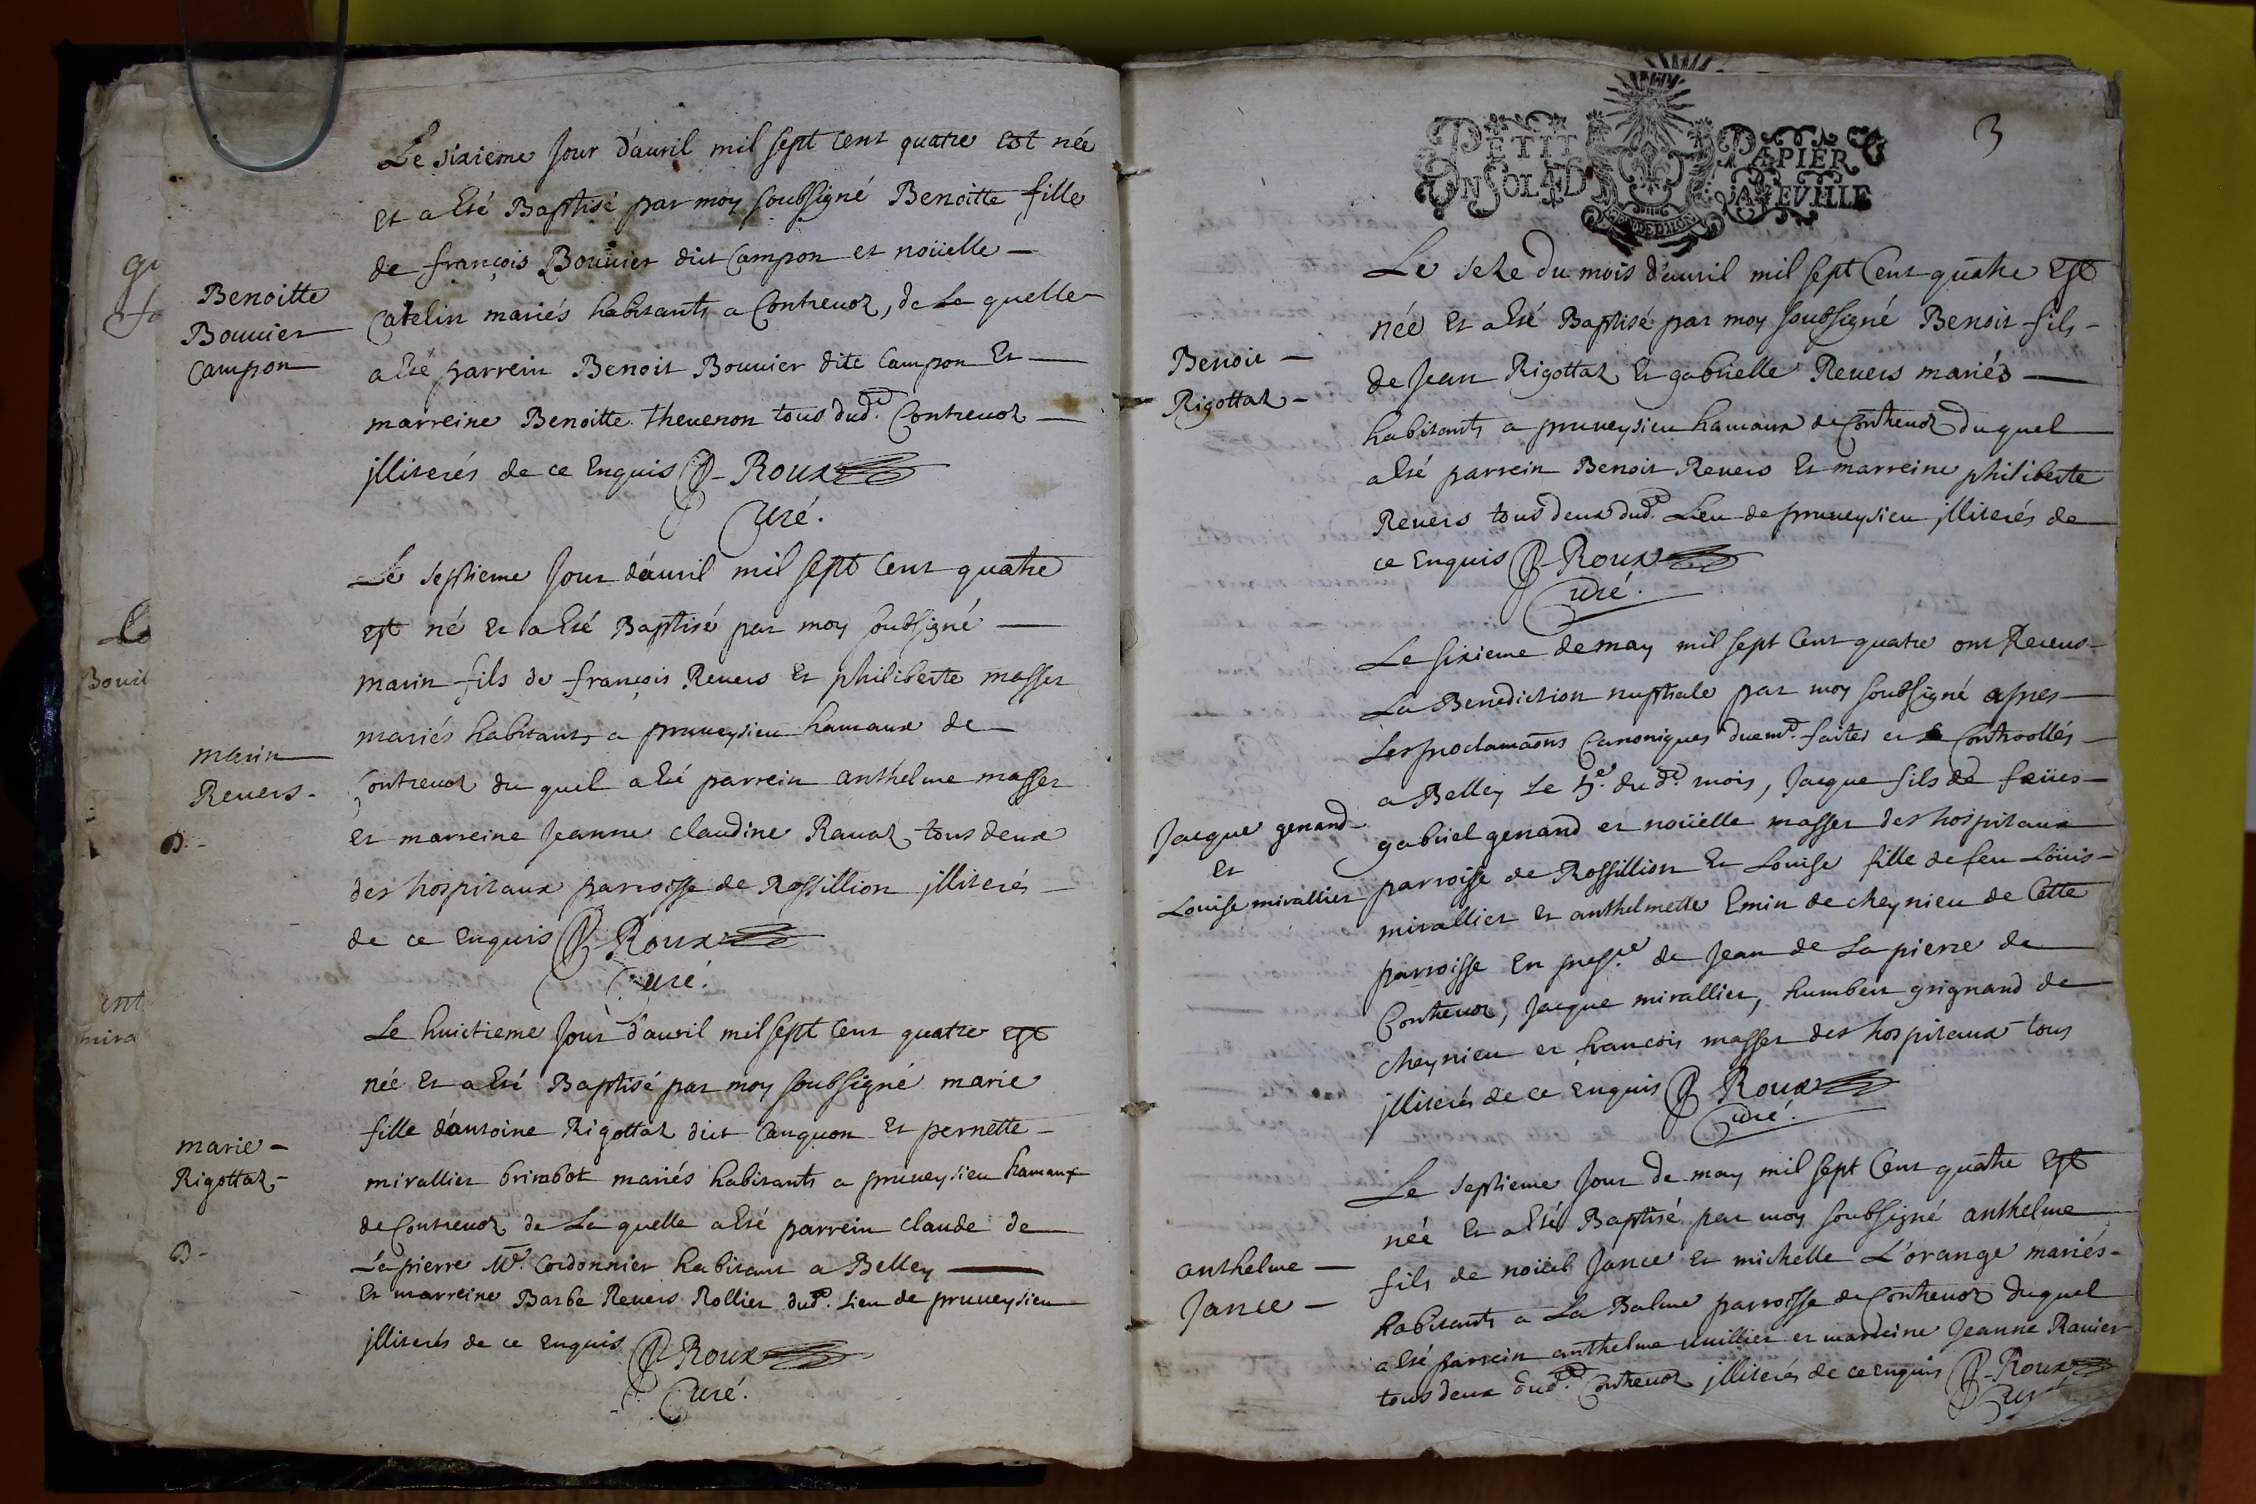 Le sixieme Jour d'auril mil sept cent quatre est née
et a esté Baptisé par moy soubsigné Benoitte fille
de françois Bouuier dict Campon et noüelle
Benoitte
Bouuier
Campon
Catelin mariés habitants a Contreuoz, de La quelle
a esté parrein Benoit Bouuier dite Campon Et
marreine Benoitte theuenon tous dud. Contreuoz
jlliterés de ce Enquis Roux
Curé.
Le septieme Jour d'auril mil sept Cent quatre
est né et a esté Baptisé par moy soubsigné
marin fils de françois Reuers et philiberte masset
mariés habitants a prüueysieu hamaux de
marin
Reuers
Contreuoz du quel a esté parrein anthelme masset
et marreine Jeanne claudine Rauaz tous deux
B.
des hospitaux parroisse de Rossillion jlliterés
de ce Enquis Roux
Curé.
Le huictieme Jour d'auril mil sept Cent quatre est
née Et a esté Baptisé par moy soubsigné marie
fille d'antoine Rigottaz dict Canquon Et pernette
marie
Rigottaz
mirallier brirabot mariés habitants a prüueysieu hamaux
de Contreuoz de La quelle a esté parrein claude de
B
La pierre Me. Cordonnier habitant a Belley
Et marreine Barbe Reuers Rollier dud. Lieu de prüueysieu
jlliterés de ce Enquis Roux
Curé.
3
PETIT PAPIER
UN SOL LA FEVILLE
Le seze du mois d'auril mil sept Cent quatre Est
née Et a esté Baptisé par moy soubsigné Benoit fils
Benoit
Rigottaz
de Jean Rigottaz Et gabrielle Reuers mariés
habitants a prüueysieu hamaux de Contreuoz duquel
a esté parrein Benoit Reuers Et marreine philiberte
Reuers tous deux dud. Lieu de prüueysieu jlliterés de
ce Enquis Roux
Curé.
Le sixieme de may mil sept Cent quatre ont Receus
La Benediction nuptiale par moy soubsigné apres
Les proclamaons Canoniques duemt. faites et Controollés
a Belley Le 5e. dud. mois, Jacque fils de feüs
Jacque genand
Et
Louise mirallier
gabriel genand et noüelle masset des hospitaux
parroisse de Rossillion Et Louise fille de feu Loüis
mirallier et anthelmette Emin de cheynieu de Cette
parroisse En presce de Jean de La pierre de
Contreuoz, Jacque mirallier, humbert grignand de
cheynieu et francois masset des hospitaux tous
jlliterés de ce Enquis Roux
Curé.
Le septieme Jour de may mil sept Cent quatre Est
née Et a esté Baptisé par moy soubsigné anthelme
anthelme
Jance
fils de noüel Jance et michelle L'orange mariés
habitants a La Balme parroisse de Contreuoz duquel
a esté parrein anthelme et marreine Jeanne Rauier
tous deux dud. Contreuoz jlliterés de ce enquis Roux
Curé